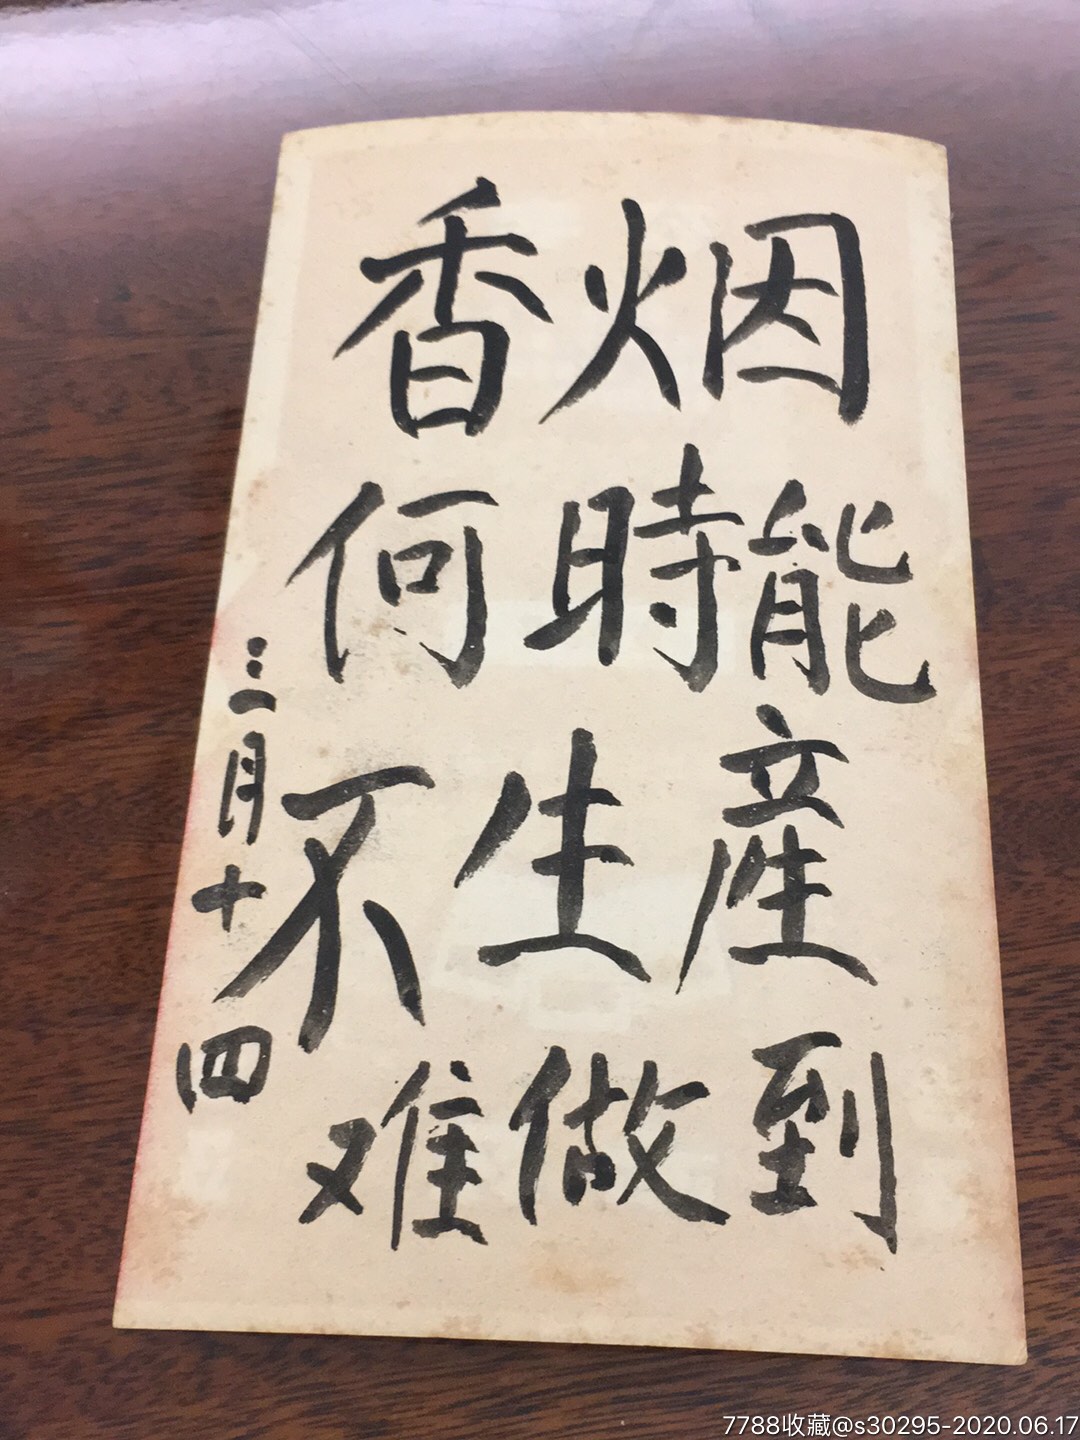 香烟
何時能
不生産
难做到
三月十四
7788收藏@s30295-2020.06.17